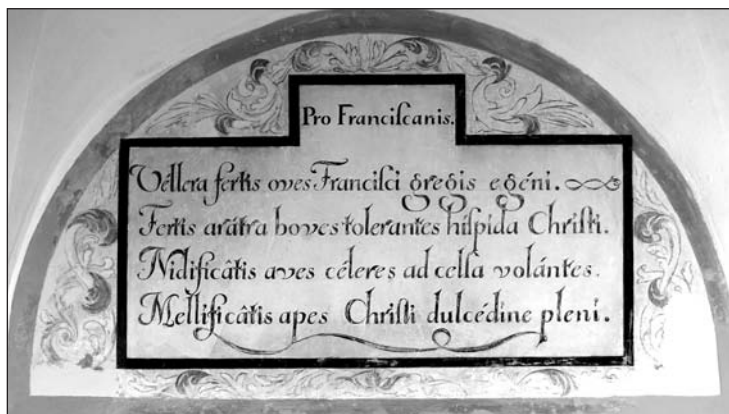 Pro Franciſcanis.
Vellera fertis oves Franciſci gregis egéni.
Fertis arátra boves tolerantes híſpida Chriſti.
Nidificâtis aves céleres ad celſa volántes.
Mellificâtis apes Chriſti dulcédine pleni.